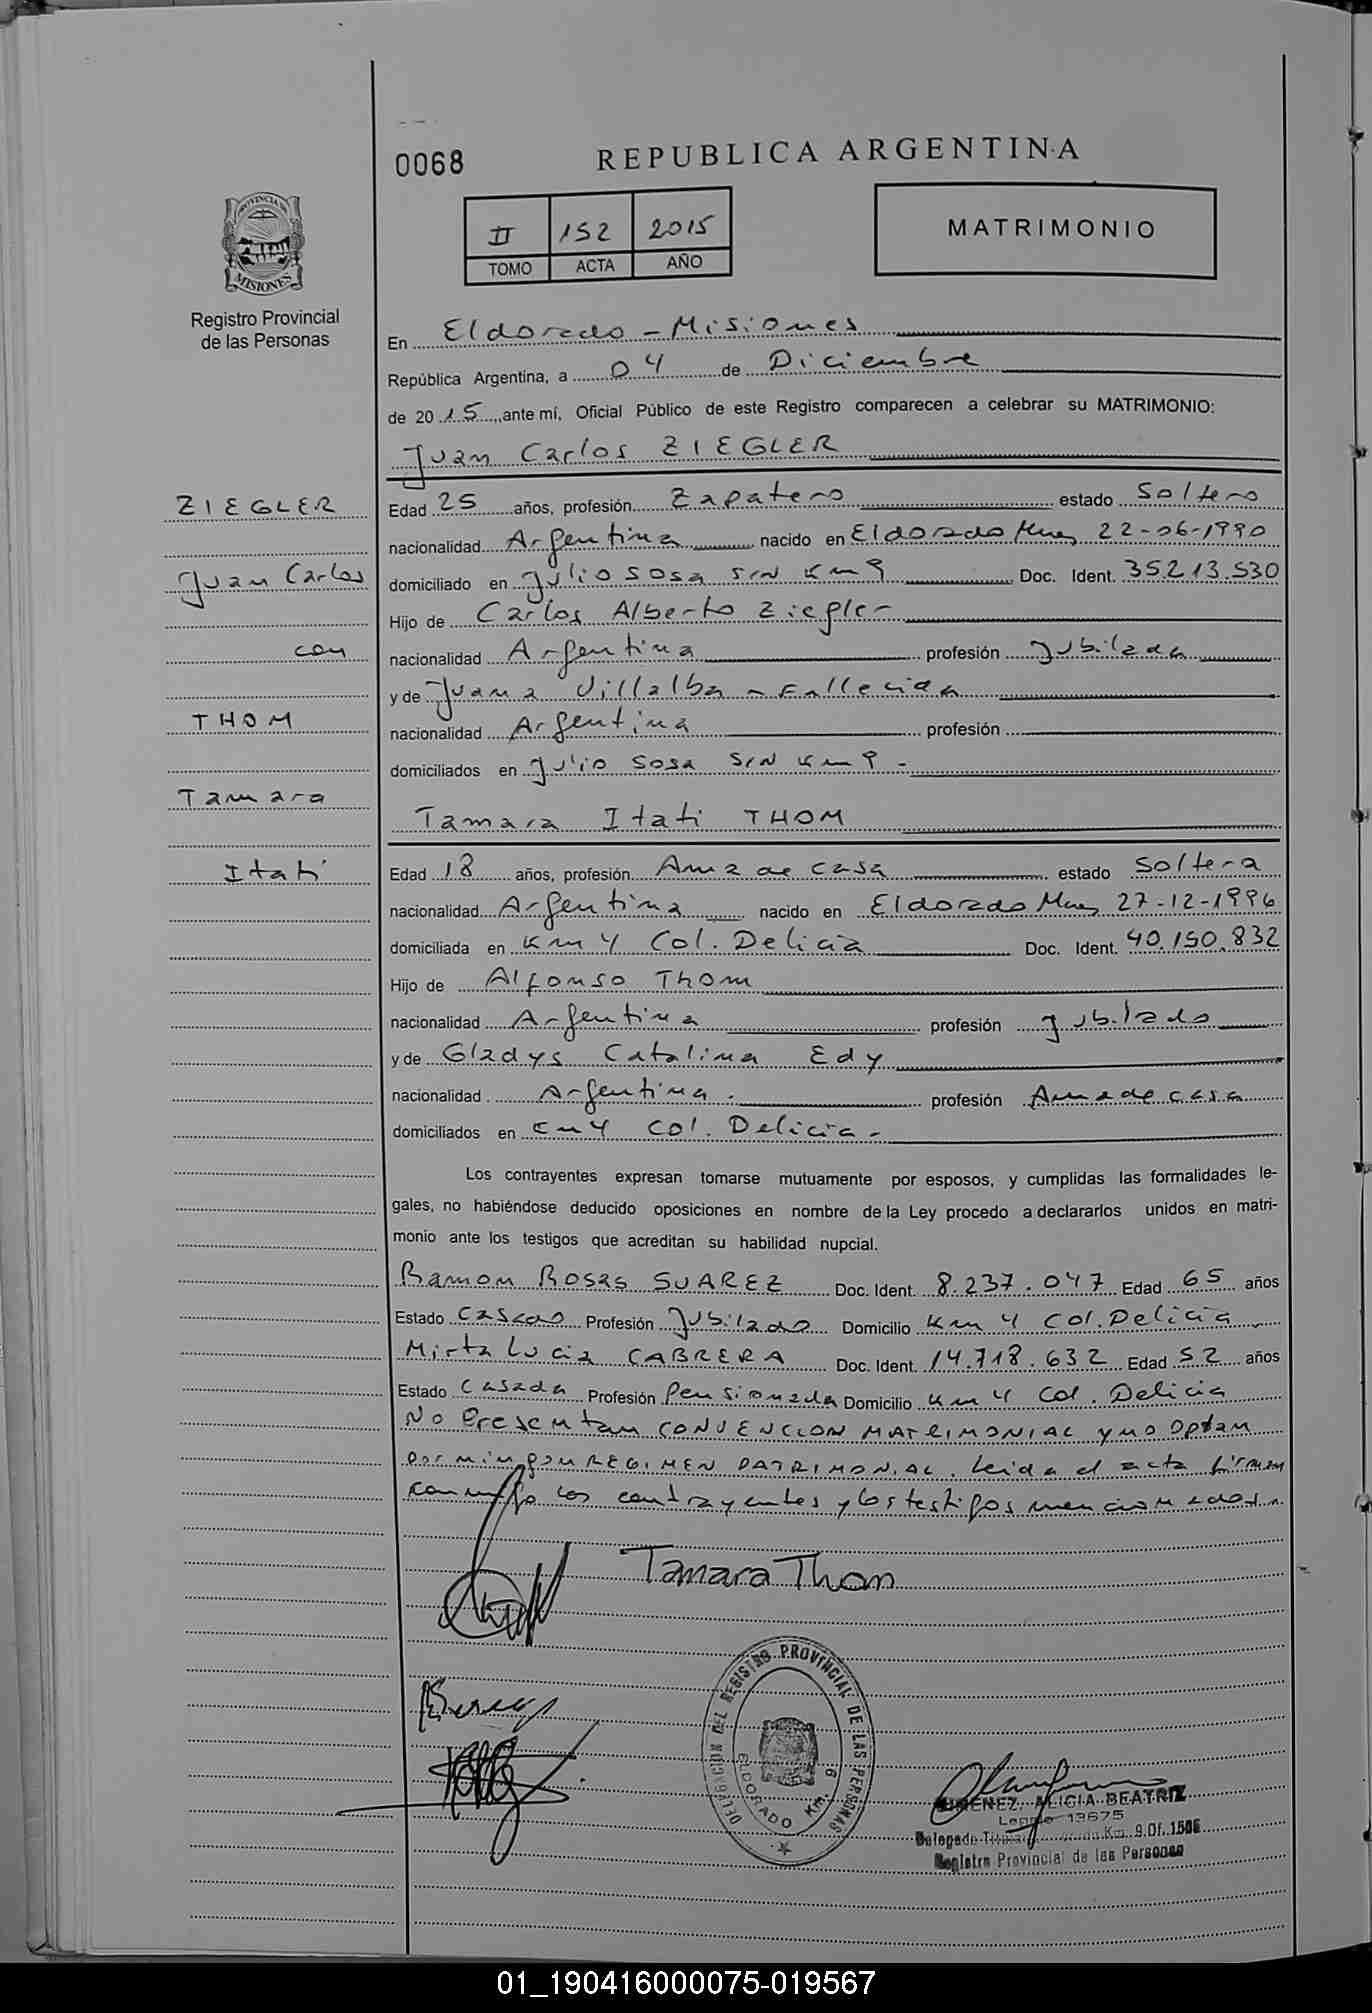 0068
REPUBLICA ARGENTINA
PROVINCIA DE
MISIONES
Registro Provincial
de las Personas
II 152 2015
TOMO ACTA AÑO
MATRIMONIO
En Eldorado - Misiones
República Argentina, a 04 de Diciembre
de 2015, ante mí, Oficial Público de este Registro comparecen a celebrar su MATRIMONIO:
Juan Carlos ZIEGLER
ZIEGLER
Juan Carlos
con
THOM
Tamara
Itatí
Edad 25 años, profesión Zapatero estado Soltero
nacionalidad Argentina nacido en Eldorado Mnes 22-06-1990
domiciliado en Julio Sosa S/N Km 9 Doc. Ident. 35.213.530
Hijo de Carlos Alberto Ziegler
nacionalidad Argentina profesión Jubilada
y de Juana Villalba - Fallecida
nacionalidad Argentina profesión
domiciliados en Julio Sosa S/N Km 9 -
Tamara Itati THOM
Edad 18 años, profesión Ama de casa estado Soltera
nacionalidad Argentina nacido en Eldorado Mnes 27-12-1996
domiciliada en Km 4 Col. Delicia Doc. Ident. 40.150.832
Hijo de Alfonso Thom
nacionalidad Argentina profesión Jubilado
y de Gladys Catalina Edy
nacionalidad Argentina. profesión Ama de casa
domiciliados en Km 4 Col. Delicia -
Los contrayentes expresan tomarse mutuamente por esposos, y cumplidas las formalidades le-
gales, no habiéndose deducido oposiciones en nombre de la Ley procedo a declararlos unidos en matri-
monio ante los testigos que acreditan su habilidad nupcial.
Ramon Rosas SUAREZ Doc. Ident. 8.237.047 Edad 65 años
Estado Casado Profesión Jubilado Domicilio Km 4 Col. Delicia
Mirta Lucia CABRERA Doc. Ident. 14.718.632 Edad 52 años
Estado Casada Profesión Pensionada Domicilio Km 4 Col. Delicia
No Presentan CONVENCION MATRIMONIAL y no optan
por ningun REGIMEN PATRIMONIAL. Leida el acta firman
conmigo los contrayentes y los testigos mencionados.
Tamara Thom
DELEGACION DEL REGISTRO PROVINCIAL DE LAS PERSONAS
ELDORADO Km. 9
GIMENEZ, ALICIA BEATRIZ
Legajo 13675
Delegado Km. 9 Of. 1506
Registro Provincial de las Personas
01_190416000075-019567